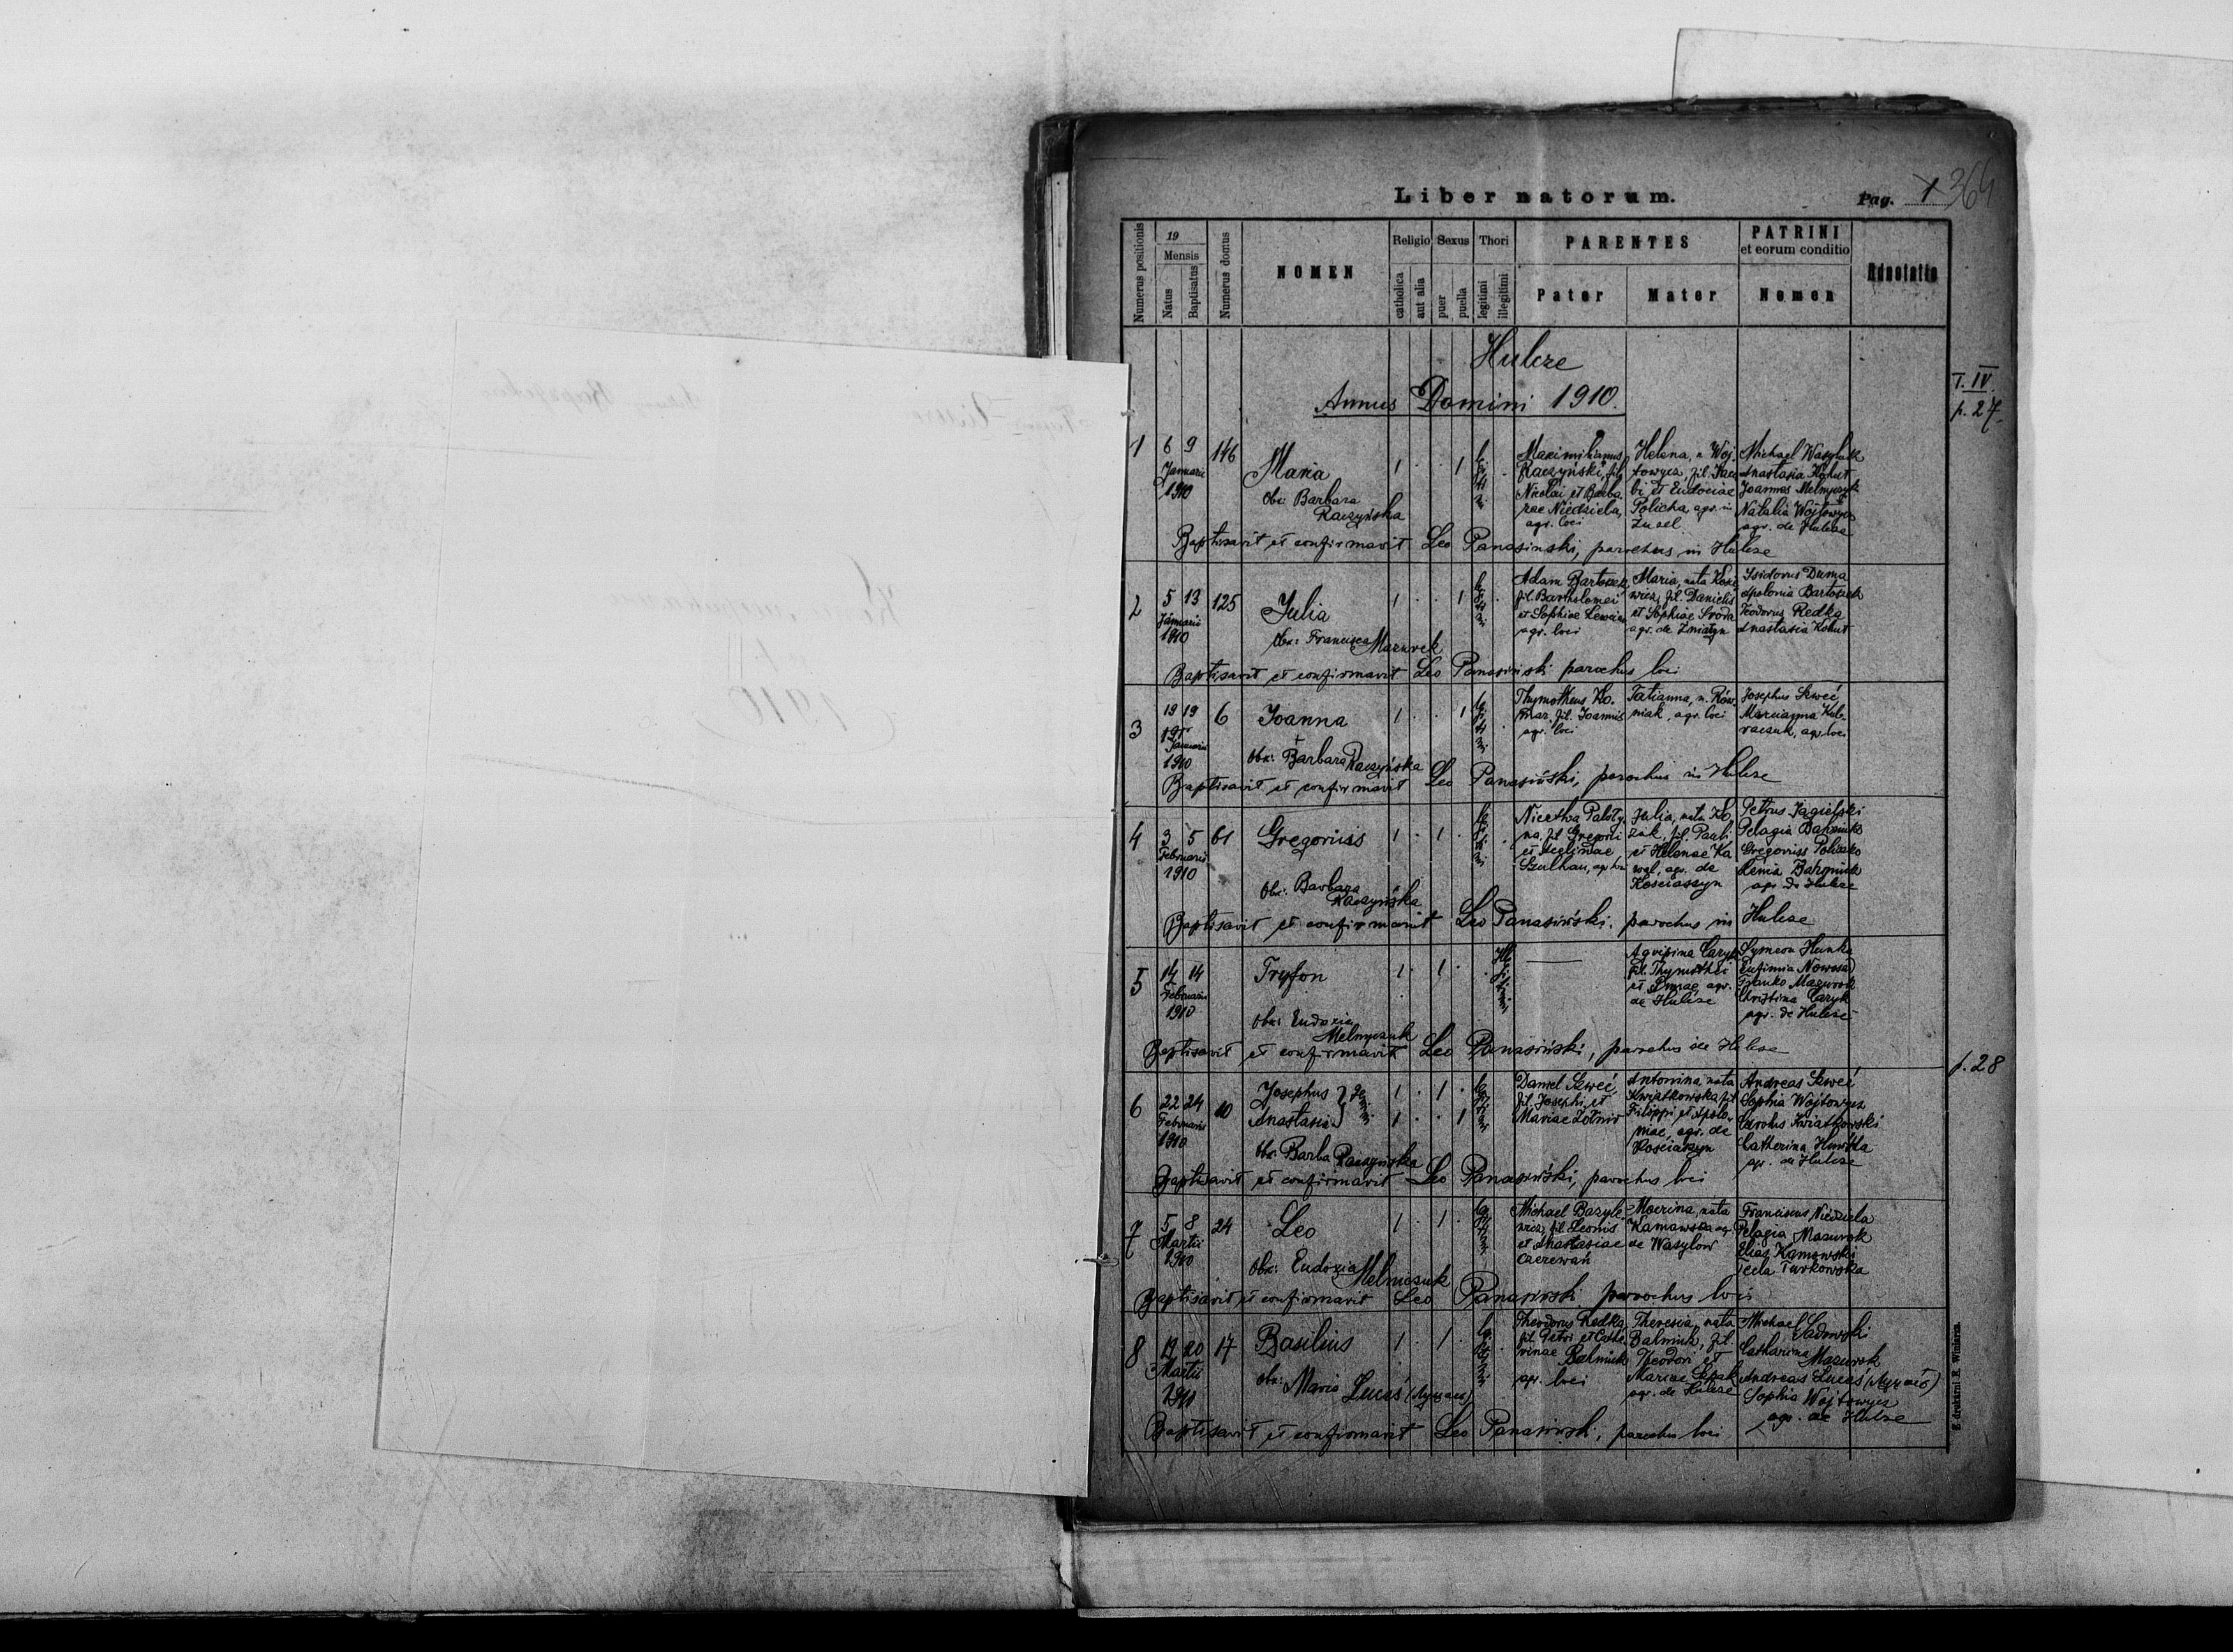 Liber natorum.
Pag. 1 364
Numerus positionis
19
Mensis
Natus
Baptisatus
Numerus domus
NOMEN
Religio
catholica
aut alia
Sexus
puer
puella
Thori
legitimi
illegitimi
PARENTES
Pater
Mater
PATRINI
et eorum conditio
Nomen
Adnotatio
Hulcze
Annus Domini 1910.
T. IV.
p. 27
1
6 9
Januarii
1910
146
Maria
Obs: Barbara
Raczyńska
1 . . 1
legitimi
Maximilianus
Raczyński, fil.
Nicolai et Barba
rae Niedziela,
agr. loci
Helena, n. Woj.
towycz, fil. Jaco
bi et Eudociae
Policha, agr. in
Michael Wasyluk
Anastasia Kohut
Joannes Melnyczuk
Natalia Wojtowycz
agr. de Hulcze
Baptisavit et confirmavit Leo Panasinski, parochus in Hulcze
2
5 13
Januarii
1910
125
Julia
Obs: Francisca Mazurek
1 . . 1
legitimi
Adam Bartoszek
fil. Bartholomei
et Sophiae
agr. loci
Maria, nata
wicz, fil. Danielis
et Sophiae Sroda
agr. de Żniatyn
Isidorus Duma
Apolonia Bartoszek
Teodorus Redka
Anastasia Kohut
Baptisavit et confirmavit Leo Panasinski parochus loci
3
19 19
Januarii
1910
6
Joanna
Obs: Barbara Raczyńska
1 . . 1
legitimi
Thymotheus Ko.
mar, fil. Joannis
agr. loci
Tatianna, n. Rów.
niak, agr. loci
Josephus Szweć
Marcianna Kul-
raczuk, agr. loci
Baptisavit et confirmavit Leo Panasiński, parochus in Hulcze
4
3 5
Februarii
1910
61
Gregorius
Obs: Barbara
Raczyńska
1 . 1 .
legitimi
na, fil. Gregorii
et
Szulhan, agr. loci
Julia, nata Ko
zak, fil. Pauli
et Helenae Ka
wal, agr. de
Kościaszyn
Petrus Jagielski
Pelagia Bahniuk
Gregorius
Xenia Bahniuk
agr. de Hulcze
Baptisavit et confirmavit Leo Panasiński, parochus in Hulcze
5
14 14
Februarii
1910
Tryfon
Obs: Eudoxia
Melnyczuk
1 . 1 .
Illegitimi
Agripina Caryk
fil. Thymothei
et Annae agr.
de Hulcze
Symeon Hunka
Eufimia Nowosad
Franko Mazurok
Christina Caryk
agr. de Hulcze
Baptisavit et confirmavit Leo Panasiński, parochus de Hulcze
p. 28
6
22 24
Februarii
1910
10
Josephus } gemini
Anastasia
Obs: Barba Raczyńska
1 . 1 .
1 . . 1
legitimi
Daniel Szweć
fil. Josephi et
Mariae Żołnir
Antonina, nata
Kwiatkowska fil.
Filippi et Apolo
niae, agr. de
Kościaszyn
Andreas Szweć
Sophia Wojtowycz
Carolus Kwiatkowski
Catherina
agr. de Hulcze
Baptisavit et confirmavit Leo Panasiński, parochus loci
7
5 8
Martii
1910
24
Leo
Obs: Eudoxia Melniczuk
1 . 1 .
legitimi
Michael Bazyle-
wicz, fil. Leonis
et Anastasiae
Czerewań
Macrina, nata
Kamawska agr.
de Wasylow
Franciscus Niedziela
Pelagia Mazurok
Elias Kamowski
Tecla Turkowska
Baptisavit et confirmavit Leo Panasiński parochus loci
8
19 20
Martii
1910
17
Basilius
Obs: Maria Lucaś
1 . 1 .
legitimi
Theodorus Redka,
fil. Petri et Cathe
rinae Bahniuk
agr. loci
Theresia, nata
Bahniuk, fil.
Theodori et
Mariae
agr. de Hulcze
Michael Sadowski
Catharina Mazurok
Andreas Lucaś
Sophia Wojtowycz
agr. de Hulcze
Baptisavit et confirmavit Leo Panasiński, parochus loci
Z drukarni E. Winiarza.
1910